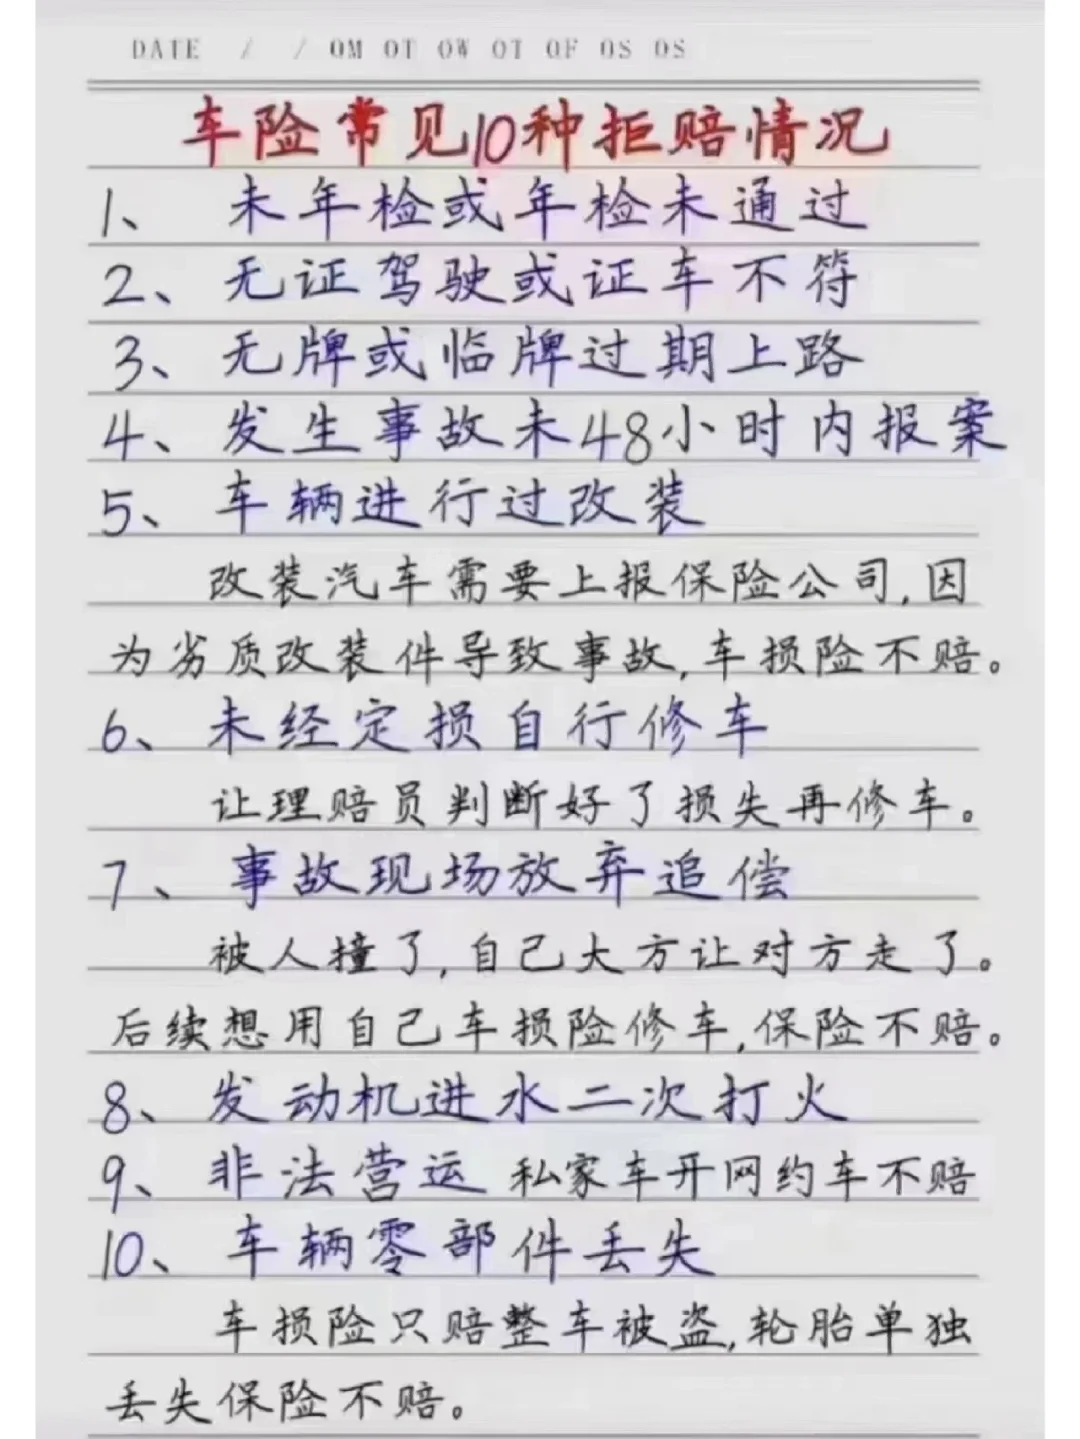 DATE / / OM OT OW OT OF OS OS
车险常见10种拒赔情况
1、未年检或年检未通过
2、无证驾驶或证车不符
3、无牌或临牌过期上路
4、发生事故未48小时内报案
5、车辆进行过改装
改装汽车需要上报保险公司,因
为劣质改装件导致事故,车损险不赔。
6、未经定损自行修车
让理赔员判断好了损失再修车。
7、事故现场放弃追偿
被人撞了,自己大方让对方走了。
后续想用自己车损险修车,保险不赔。
8、发动机进水二次打火
9、非法营运 私家车开网约车不赔
10、车辆零部件丢失
车损险只赔整车被盗,轮胎单独
丢失保险不赔。